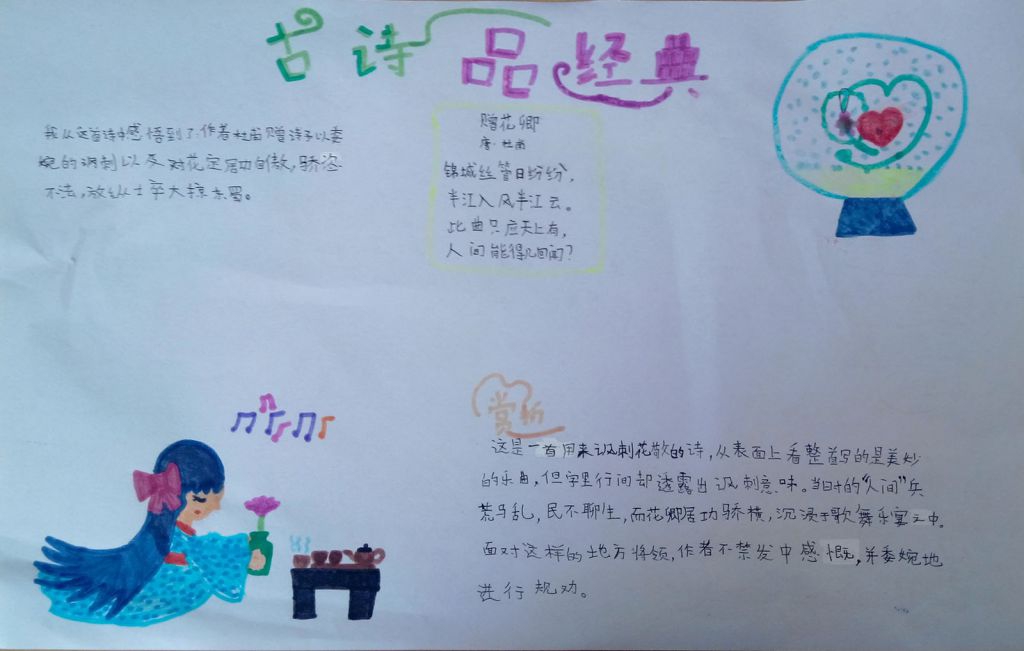 古诗品经典
我从这首诗中感悟到了,作者杜甫赠诗予以委
婉的讽刺以及对花定居功自傲,骄恣
不法,放纵士卒大掠东蜀。
赠花卿
唐·杜甫
锦城丝管日纷纷,
半江入风半江云。
此曲只应天上有,
人间能得几回闻?
赏析
这是一首用来讽刺花敬的诗,从表面上看整首写的是美妙
的乐曲,但字里行间却透露出讽刺意味。当时的“人间”兵
荒马乱,民不聊生,而花卿居功骄横,沉浸于歌舞乐宴之中。
面对这样的地方将领,作者不禁发中感慨,并委婉地
进行规劝。